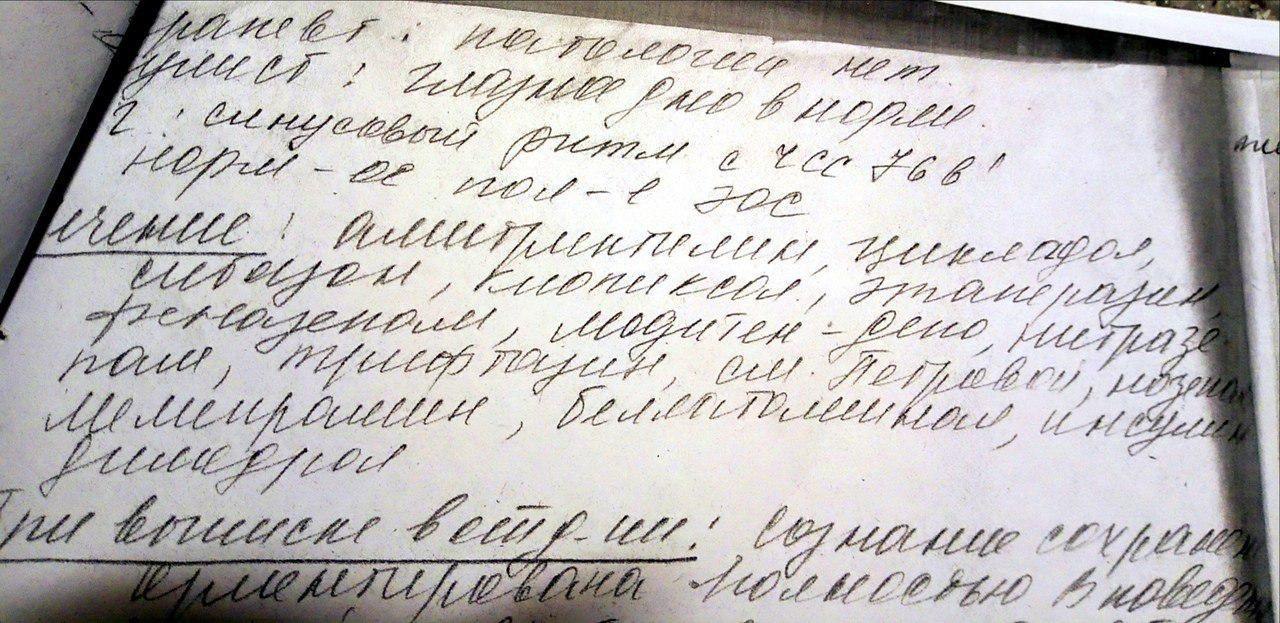 рапевт: патологии нет.
улист: глазное дно в норме.
Г: синусовый ритм с ЧСС 76 в '
норм-ое пол-е ЭОС
ечение: амитриптилин, циклодол,
сибазон, клопиксол, этаперазин,
феназепам, модитен-депо, нитразе-
пам, трифтазин, см. Петровой, нозепам
мелипрамин, беллатаминал, инсулин
димедрол
При выписке в отд-нии: сознание сохранен
ориентирована полностью. В повед